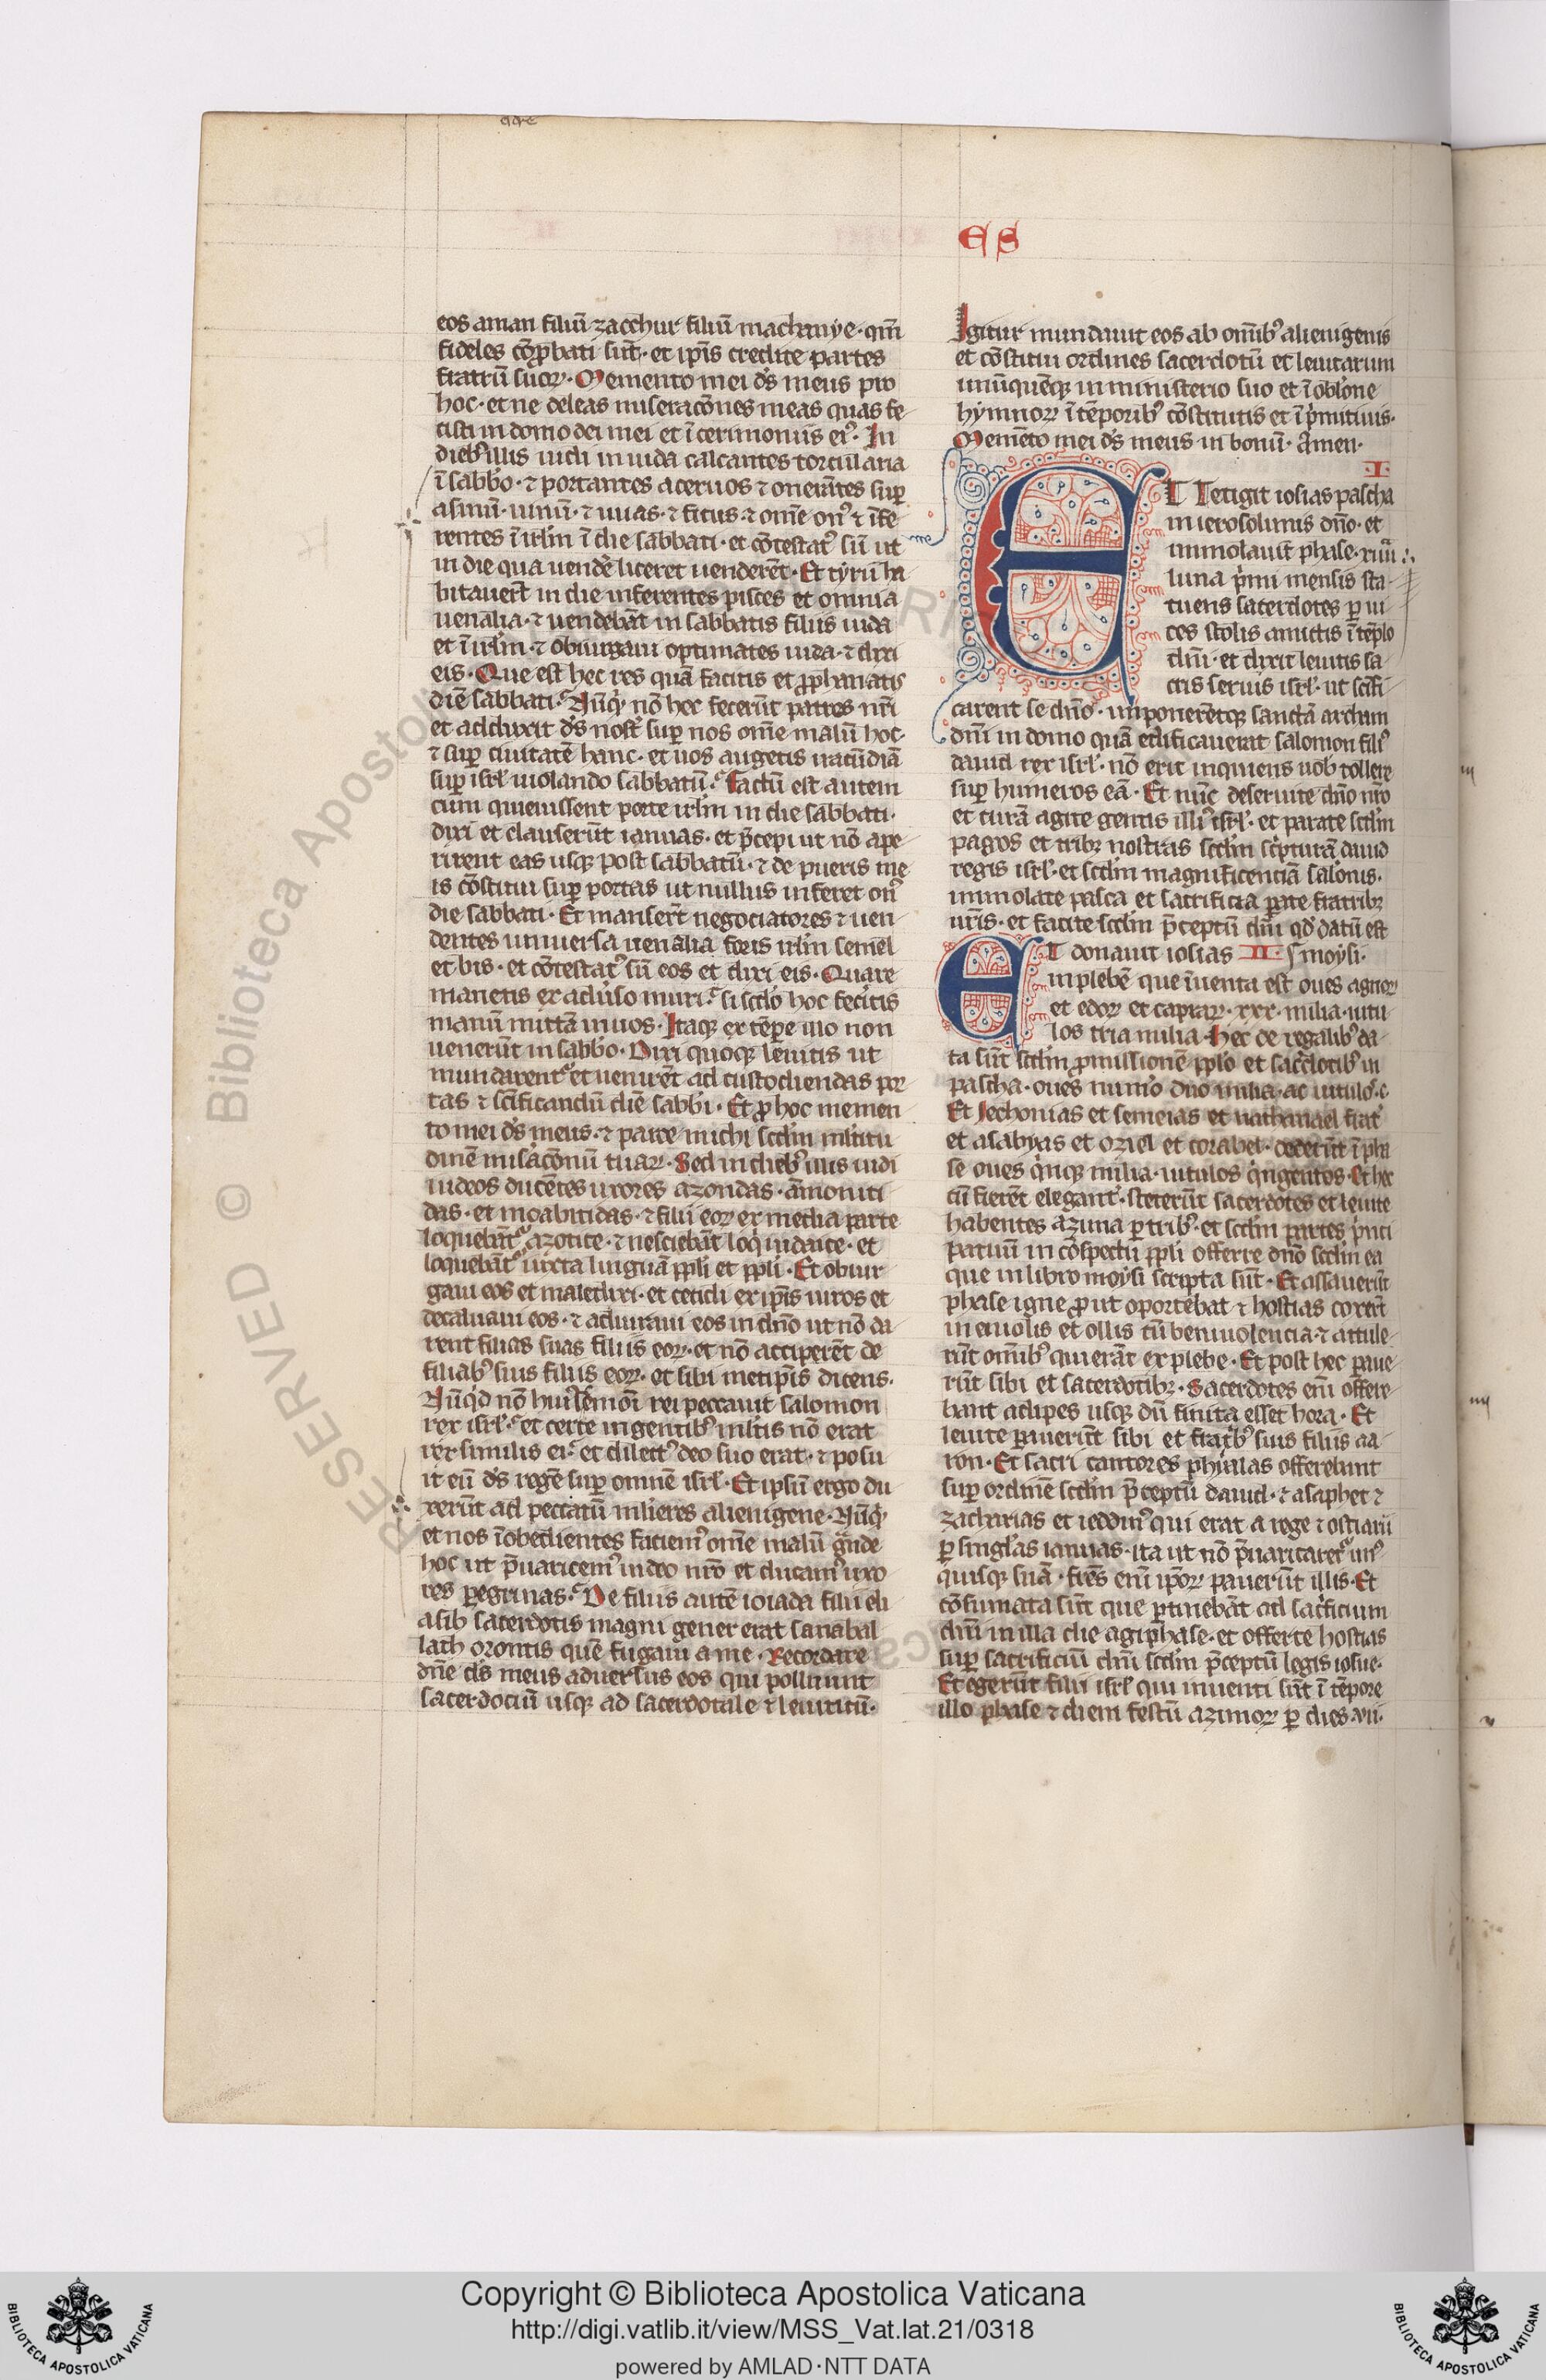 ES
eos aman filiū zacchur filiū mathanye · qm̄
fideles cōprobati sūt · et ip̄is credite partes
fratrū suoꝝ · Memento mei dś meus pro
hoc · et ne deleas miseracōnes meas quas fe-
cisti in domo dei mei et ī cerimoniis eiꝰ · In
diebꝫ illis uidi in iuda calcantes torcularia
ī sabbo · ⁊ portantes aceruos ⁊ onerātes sup̄
asinū · uinū · ⁊ uuas · ⁊ ficus · ⁊ om̄e onꝰ ⁊ īfe-
rentes ī irl̄m ī die sabbati · et cōtestatꝰ sū ut
in die qua uendē liceret uenderēt · Et tyrii ha-
bitauer̄t in die inferentes pisces et omnia
uenalia · ⁊ uendebāt in sabbatis filiis iuda
et ī irl̄m · ⁊ obiurgaui optimates iuda · ⁊ dixi
eis · Que est hec res quā facitis et ꝓphanatis
diē sabbati · Nūq̇ nō hec fecerūt patres nr̄i
et adduxit dś nost̄ sup̄ nos om̄e malū hoc ·
⁊ sup̄ ciuitatē hanc · et uos augetis iracūdiā
sup̄ isrl̄ uiolando sabbatū · Factū est autem
cum quieuissent porte irl̄m in die sabbati ·
dixi et clauserūt ianuas · et p̄cepi ut nō ape-
rirent eas usqꝫ post sabbatū · ⁊ de pueris me-
is cōstitui sup̄ portas ut nullus inferet onꝰ
die sabbati · Et manser̄t negociatores ⁊ uen-
dentes uniuersa uenalia foris irl̄m semel
et bis · et cōtestatꝰ sū eos et dixi eis · Quare
manetis ex aduso muri · si scdo hoc fecitis
manū mittā in uos · Itaqꝫ ex tēpe illo non
uenerūt in sabbo · Dixi quoqꝫ leuitis ut
mundarentꝰ et uenirēt ad custodiendas por-
tas ⁊ sc̄ificandū diē sabbi · Et ꝓ hoc memen-
to mei dś meus · ⁊ parce michi scdm mltitu
dinē mis̄acōnū tuaꝝ · Sed in diebꝫ illis uidi
iudeos ducētes uxores azotidas · āmoniti-
das · et moabitidas · ⁊ filii eoꝝ ex media parte
loquebātꝰ azotice · ⁊ nesciebāt loq̇ iudaice · et
loquebātꝰ iuxta linguā ppl̄i et ppl̄i · Et obiur-
gaui eos et maledixi · et cecidi ex ip̄is uiros et
decaluaui eos · ⁊ adiuraui eos in dn̄o ut nō da-
rent filias suas filiis eoꝝ · et nō acciperēt de
filiabꝫ suis filiis eoꝝ · et sibi metip̄is dicens ·
Nūq̇d nō huiꝰcemōi rei peccauit salomon
rex isrl̄ · et certe in gentibꝫ mltis nō erat
rex similis ei · et dilectꝰ deo suo erat · ⁊ posu-
it eū dś regē sup̄ omnē isrl̄ · Et ipsū ergo du-
xerūt ad peccatū mlieres alienigene · Nūq̇
et nos īobedientes faciemꝰ om̄e malū g̃nde
hoc ut p̄uaricemꝰ in deo nr̄o et ducamꝰ uxo-
res pegrinas · De filiis autē ioiada filii eli-
asib sacerdotis magni gener erat sanabal
lath orontis quē fugaui a me · Recordare
dn̄e ds meus aduersus eos qui polluunt
sacerdociū usqꝫ ad sacerdotale ⁊ leuiticū ·
Igitur mundaui eos ab om̄ibꝫ alienigenis
et cōstitui ordines sacerdotū et leuitarum
unūquēqꝫ in ministerio suo et ī oblōne
hymnoꝝ ī tēporibꝫ cōstitutis et ī p̄mitiuis ·
Memēto mei dś meus in bonū · Amen ·
I
ET Fetigit iosias pascha
in ierosolimis dn̄o · et
immolauit phase · xiiii
luna p̄mi mensis sta-
tuens sacerdotes p̱ ui-
ces stolis amictis ī tēplo
dn̄i · et dixit leuitis sa-
cris seruis isrl̄ · ut sc̄ifi-
carent se dn̄o · imponerētqꝫ sanctā archam
dn̄i in domo quā edificauerat salomon filiꝰ
dauid rex isrl̄ · nō erit inquiens uob tollere
sup̄ humeros eā · Et nūc deseruite dn̄o nr̄o
et curā agite gentis illiꝰ isrl̄ · et parate scdm
pagos et tribꝫ nostras scdm sc̄pturā dauid
regis isrl̄ · et scdm magnificentiā salonis ·
immolate pasca et sacrificia parate fratribꝫ
ur̄is · et facite scdm p̄ceptū dn̄i qd̄ datū est
ET donauit iosias II moysi ·
in plebē que īuenta est oues agnoꝝ
et edoꝝ et capraꝝ · xxx · milia · uitu-
los tria milia · Hec de regalibꝫ da-
ta sūt scdm ꝓmissionē pplo et sac̄dotibꝫ in
pascha · oues num̄o duo milia · ac uitulos · c ·
Et Iechonias et semeias et nathanael frat̄
et asabyas et oziel et corabel · dederūt ī pha-
se oues q̇nqꝫ milia · uitulos q̇ngentos · Et hec
cū fierēt elegant̄ · steterūt sacerdotes et leuite
habentes azima p̱ tribꝫ · et scdm partes p̄nci-
patuū in cōspectu ppli offerre dn̄o scdm ea
que in libro moysi scripta sūt · Et assauerūt
phase igne ꝓut oportebat ⁊ hostias coxer̄t
in emolis et ollis cū beniuolencia · ⁊ attule-
rūt om̄ibꝫ qui erāt ex plebe · Et post hec paue-
rūt sibi et sacerdotibꝫ · Sacerdotes eni offere-
bant adipes usqꝫ dū finita esset hora · Et
leuite pauerūt sibi et fratribꝫ suis filiis aa-
ron · Et sacri cantores p̱ hymas offerebunt
sup̄ ordinē scdm p̄ceptū dauid · ⁊ asaphet ⁊
zacharias et ieddimꝰ qui erat a rege ⁊ ostiarii
p̱ singlas ianuas · ita ut nō p̄uaricaretꝰ unꝰ
quisqꝫ suā · fr̄es eni ip̄oꝝ pauerūt illis · Et
cōsumata sūt que ptinebāt ad sac̄ficium
dn̄i in illa die agi phase · et offerre hostias
sup̄ sacrificiū dn̄i scdm p̄ceptū legis iosue ·
Et egerūt filii isrl̄ qui inuenti sūt ī tēpore
illo phase ⁊ diem festū azimoꝝ p̱ dies · vii ·
RESERVED © Biblioteca Apostolica
Copyright © Biblioteca Apostolica Vaticana
http://digi.vatlib.it/view/MSS_Vat.lat.21/0318
powered by AMLAD·NTT DATA
BIBLIOTECA APOSTOLICA VATICANA
BIBLIOTECA APOSTOLICA VATICANA